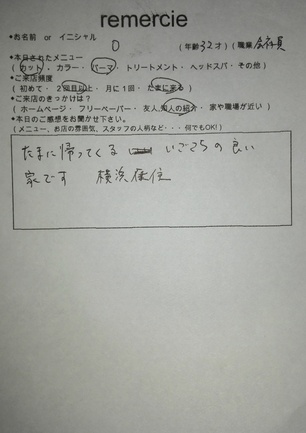 remercie
*お名前 or イニシャル
O (年齢32才) (職業 会社員
*本日されたメニュー
(カット・カラー・パーマ・トリートメント・ヘッドスパ・その他)
*ご来店頻度
(初めて・2回目以上・月に1回・たまに来る)
*ご来店のきっかけは?
(ホームページ・フリーペーパー・友人,知人の紹介・家や職場が近い)
*本日のご感想をお聞かせ下さい。
(メニュー、お店の雰囲気、スタッフの人柄など・・・何でもOK!)
たまに帰ってくる いごこちの良い
家です 横浜在住